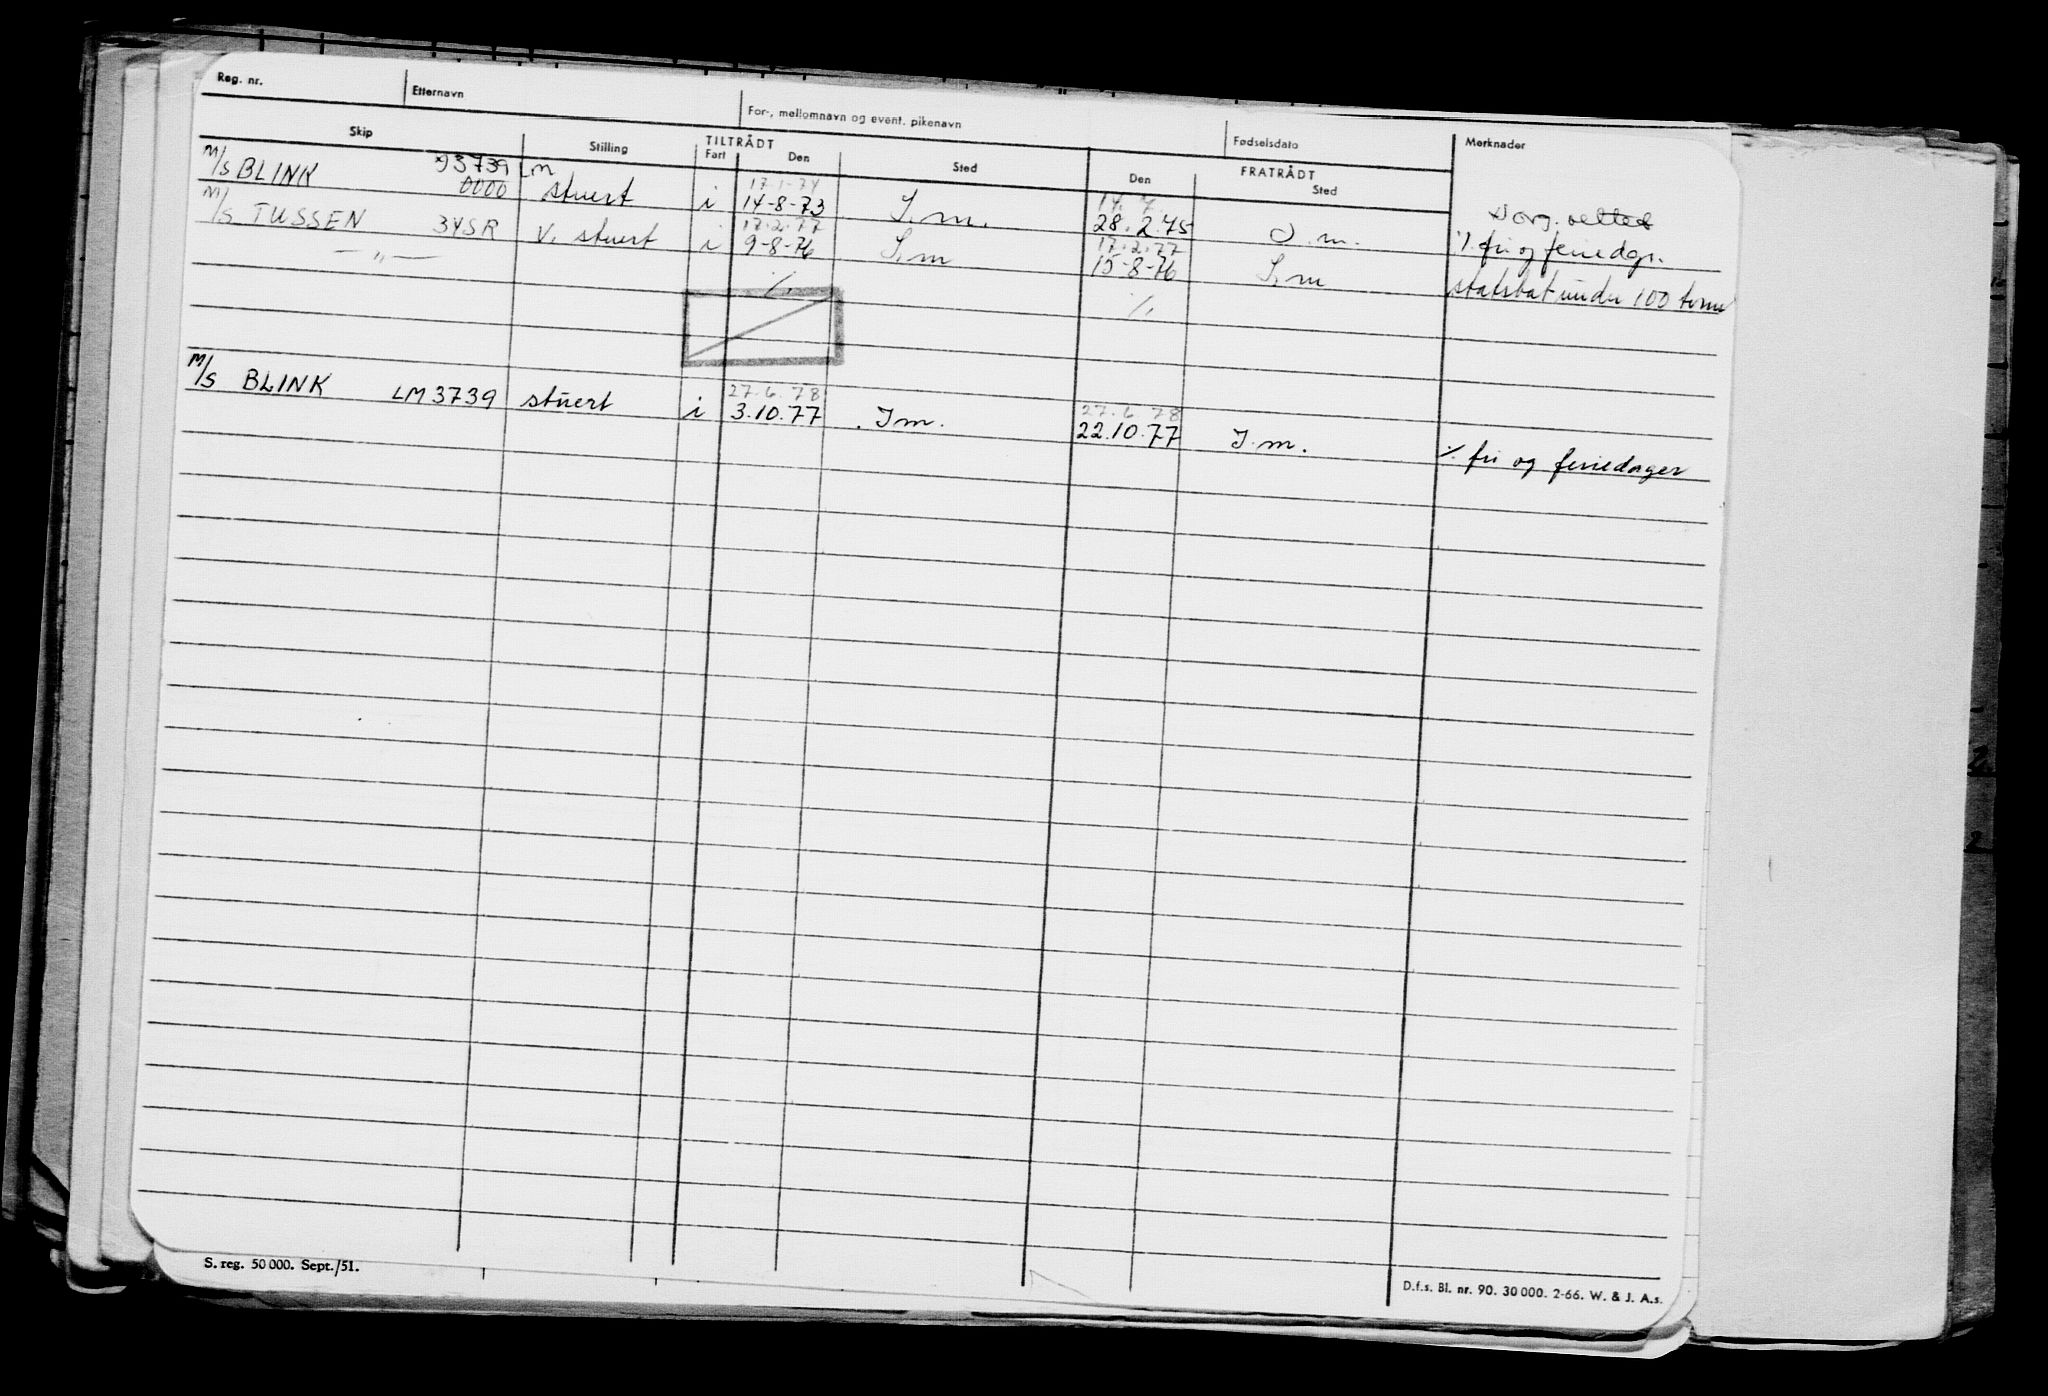 Reg. nr. Etternavn For-, mellomnavn og event. pikenavn Fødselsdato Merknader
Skip Stilling TILTRÅDT FRATRÅDT
Fart Den Sted Den Sted
M/S BLINK 93739 LM
0000 stuert i 17.1.74
14-8-73 I.m. 28.2.75 I.m. org. rettet
M/S TUSSEN 34SR V. stuert i 17.2.77
9-8-76 I.m 17.2.77
15-8-76 I.m % fri og feriedgr.
— „ — statsbåt under 100 tonn
%
%
M/S BLINK LM3739 stuert i 27.6.78
3.10.77 I m. 27.6.78
22.10.77 I.m. % fri og feriedager
S. reg. 50 000. Sept./51.
D.f.s. Bl. nr. 90. 30 000. 2-66. W. & J. A.s.